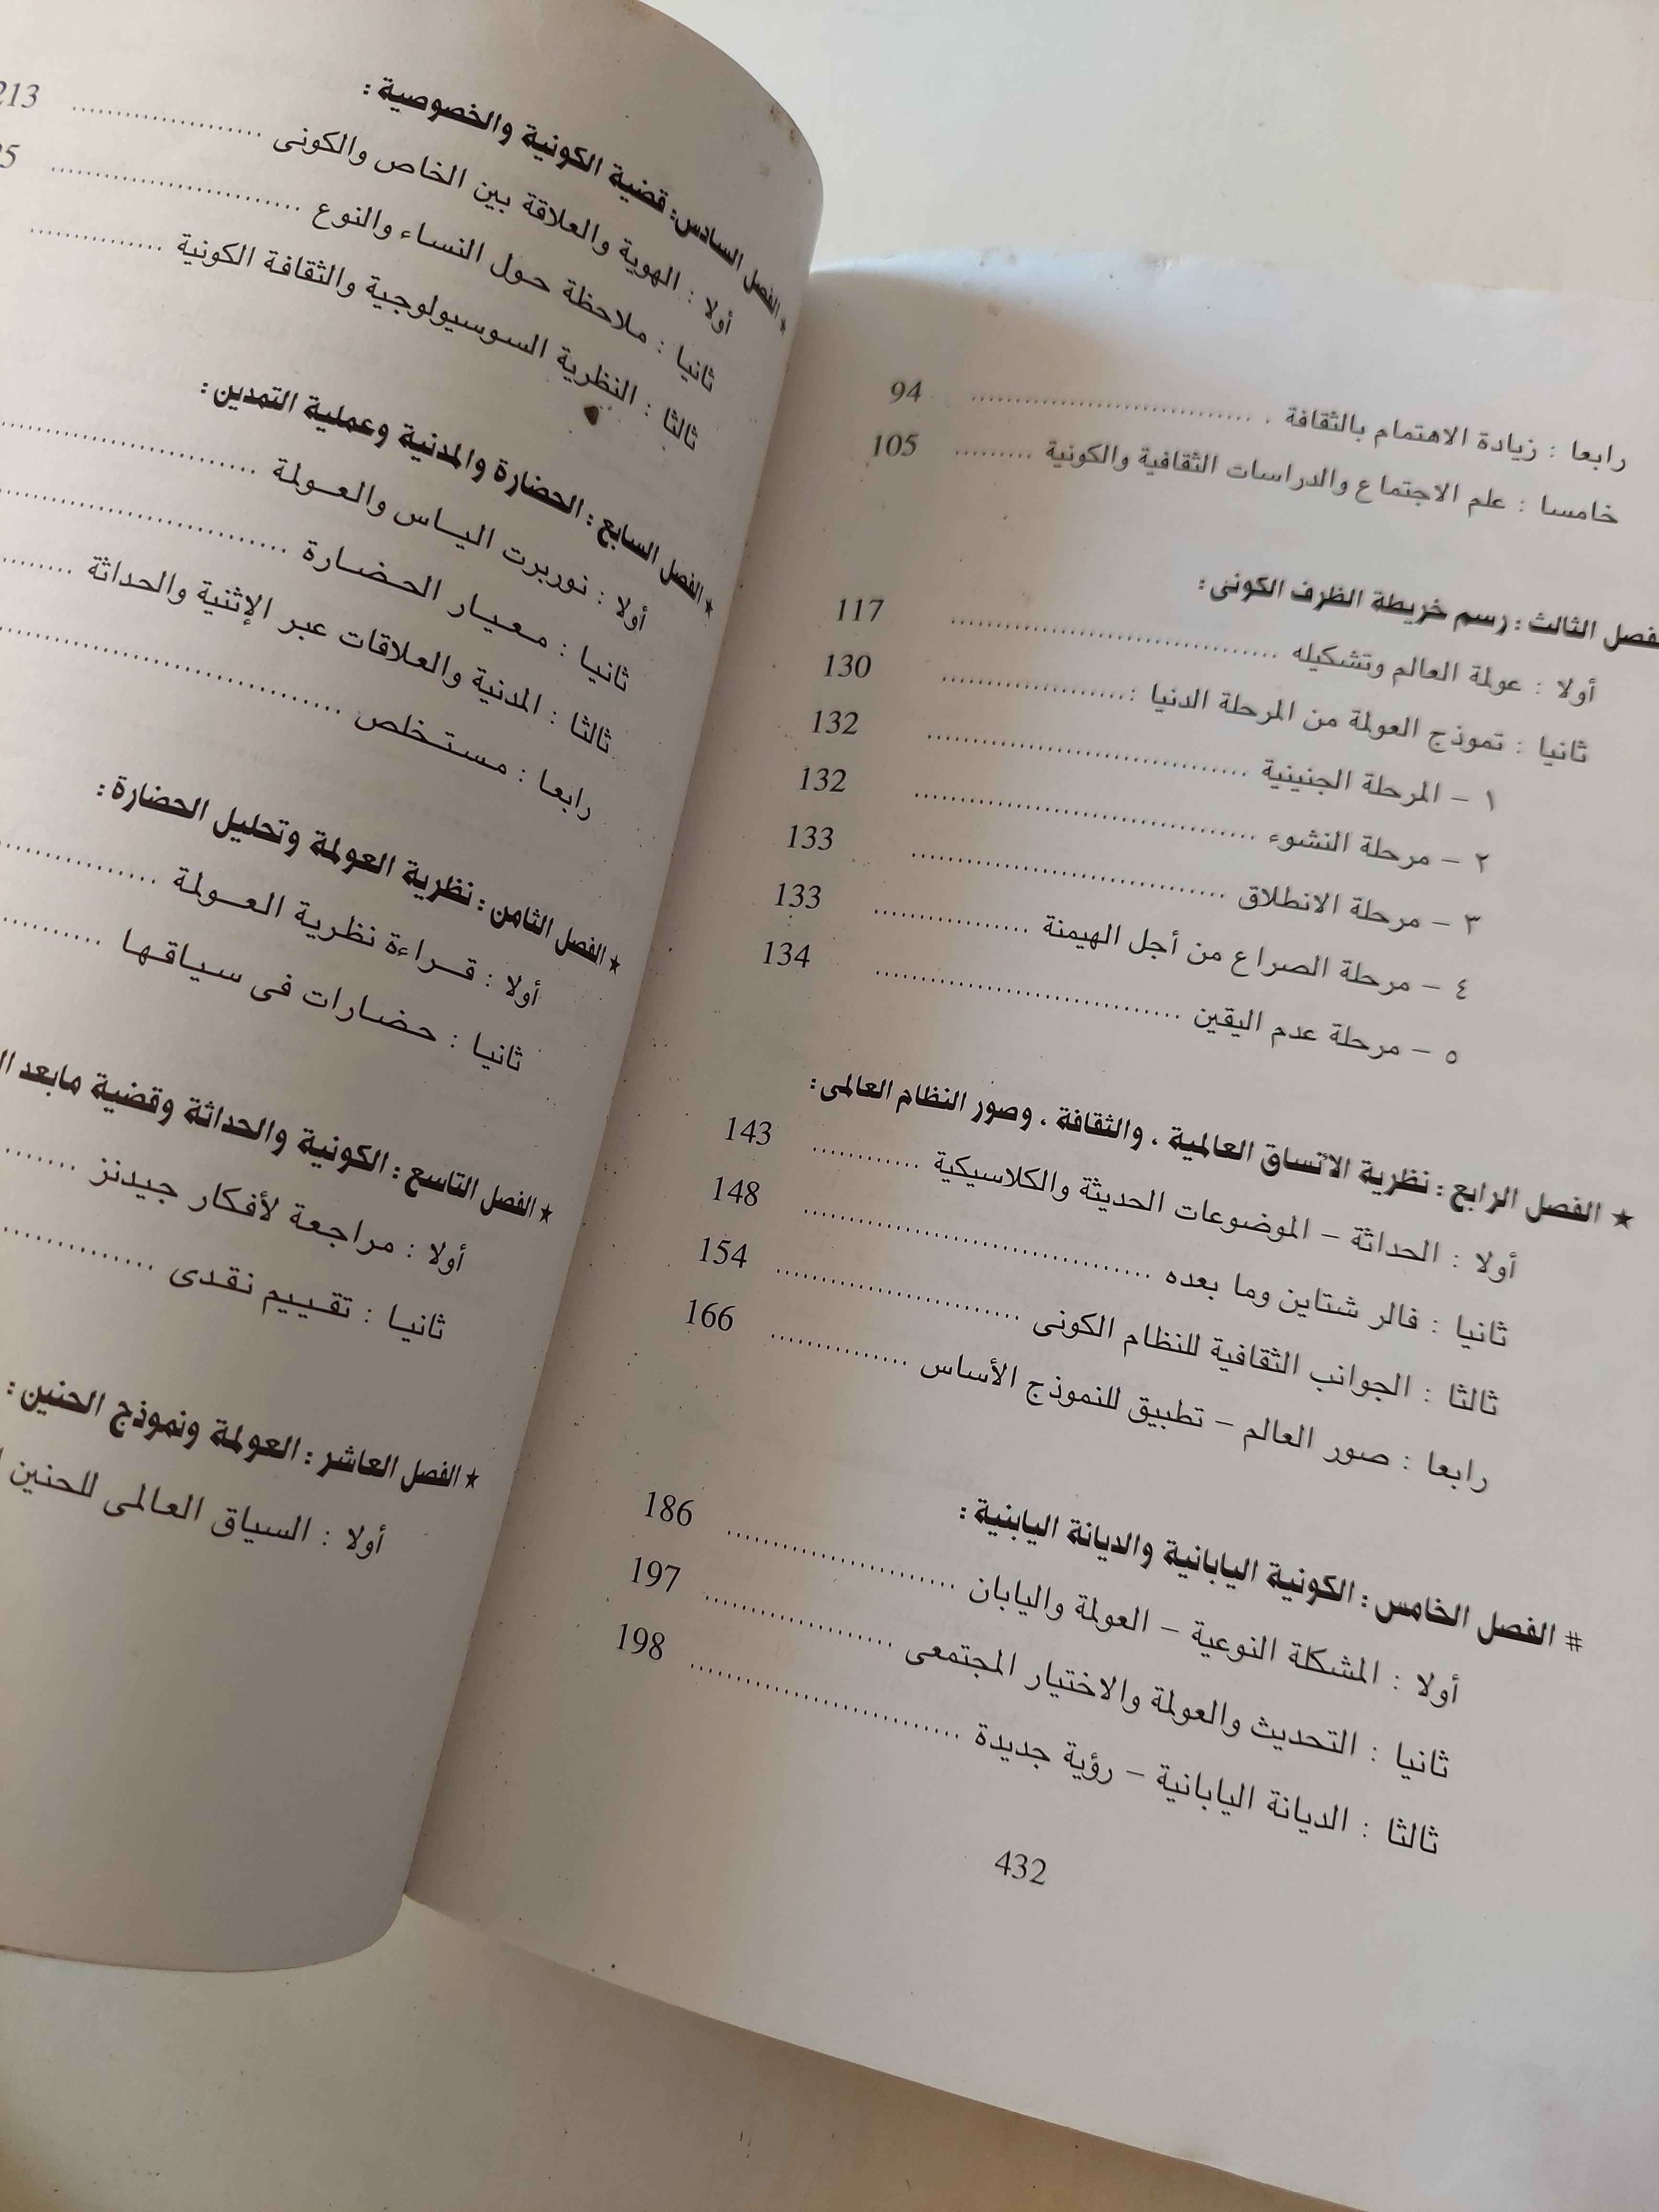 رابعا : زيادة الاهتمام بالثقافة . .............................. 94
خامسا : علم الاجتماع والدراسات الثقافية والكونية ......... 105
الفصل الثالث : رسم خريطة الظرف الكونى :
أولا : عولمة العالم وتشكيله .................................... 117
ثانيا : نموذج العولمة من المرحلة الدنيا : .................... 130
١ – المرحلة الجنينية ................................... 132
٢ – مرحلة النشوء ..................................... 132
٣ – مرحلة الانطلاق .................................. 133
٤ – مرحلة الصراع من أجل الهيمنة ................. 133
٥ – مرحلة عدم اليقين ................................. 134
★ الفصل الرابع : نظرية الأنساق العالمية ، والثقافة ، وصور النظام العالمى :
أولا : الحداثة – الموضوعات الحديثة والكلاسيكية ............ 143
ثانيا : فالر شتاين وما بعده ...................................... 148
ثالثا : الجوانب الثقافية للنظام الكونى ........................... 154
رابعا : صور العالم – تطبيق للنموذج الأساس ............... 166
# الفصل الخامس : الكونية اليابانية والديانة اليابنية :
أولا : المشكلة النوعية – العولمة واليابان ......................... 186
ثانيا : التحديث والعولمة والاختيار المجتمعى .................... 197
ثالثا : الديانة اليابانية – رؤية جديدة .............................. 198
432
★ الفصل السادس : قضية الكونية والخصوصية :
أولا : الهوية والعلاقة بين الخاص والكونى ..................... 213
ثانيا : ملاحظة حول النساء والنوع ...........................
ثالثا : النظرية السوسيولوجية والثقافة الكونية ...............
★ الفصل السابع : الحضارة والمدنية وعملية التمدين :
أولا : نوربرت الياس والعولمة ............................
ثانيا : معيار الحضارة ................................
ثالثا : المدنية والعلاقات عبر الإثنية والحداثة ........
رابعا : مستخلص ...................................
★ الفصل الثامن : نظرية العولمة وتحليل الحضارة :
أولا : قراءة نظرية العولمة .................
ثانيا : حضارات فى سياقها ...........
★ الفصل التاسع : الكونية والحداثة وقضية مابعد
أولا : مراجعة لأفكار جيدنز ........
ثانيا : تقييم نقدى ................
★ الفصل العاشر : العولمة ونموذج الحنين :
أولا : السياق العالمى للحنين